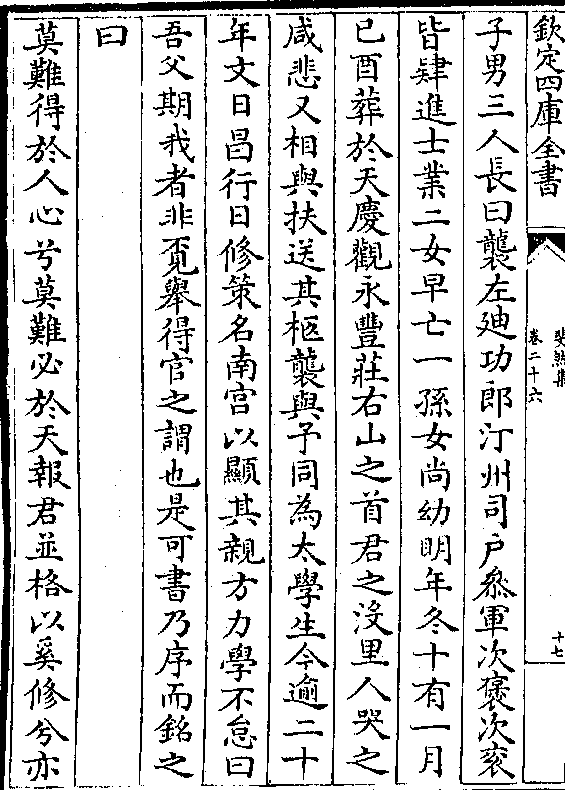 欽定四庫全書
斐然集
卷二十六
十七
子男三人長曰襲左廸功郎汀州司戶叅軍次褒次衮
皆肄進士業二女早亡一孫女尚幼明年冬十有一月
已酉葬於天慶觀永豐莊右山之首君之沒里人哭之
咸悲又相與扶送其柩襲與予同為太學生今逾二十
年文日昌行日修策名南宫以顯其親方力學不怠曰
吾父期我者非覔舉得官之謂也是可書乃序而銘之
曰
莫難得於人心兮莫難必於天報君並格以奚修兮亦